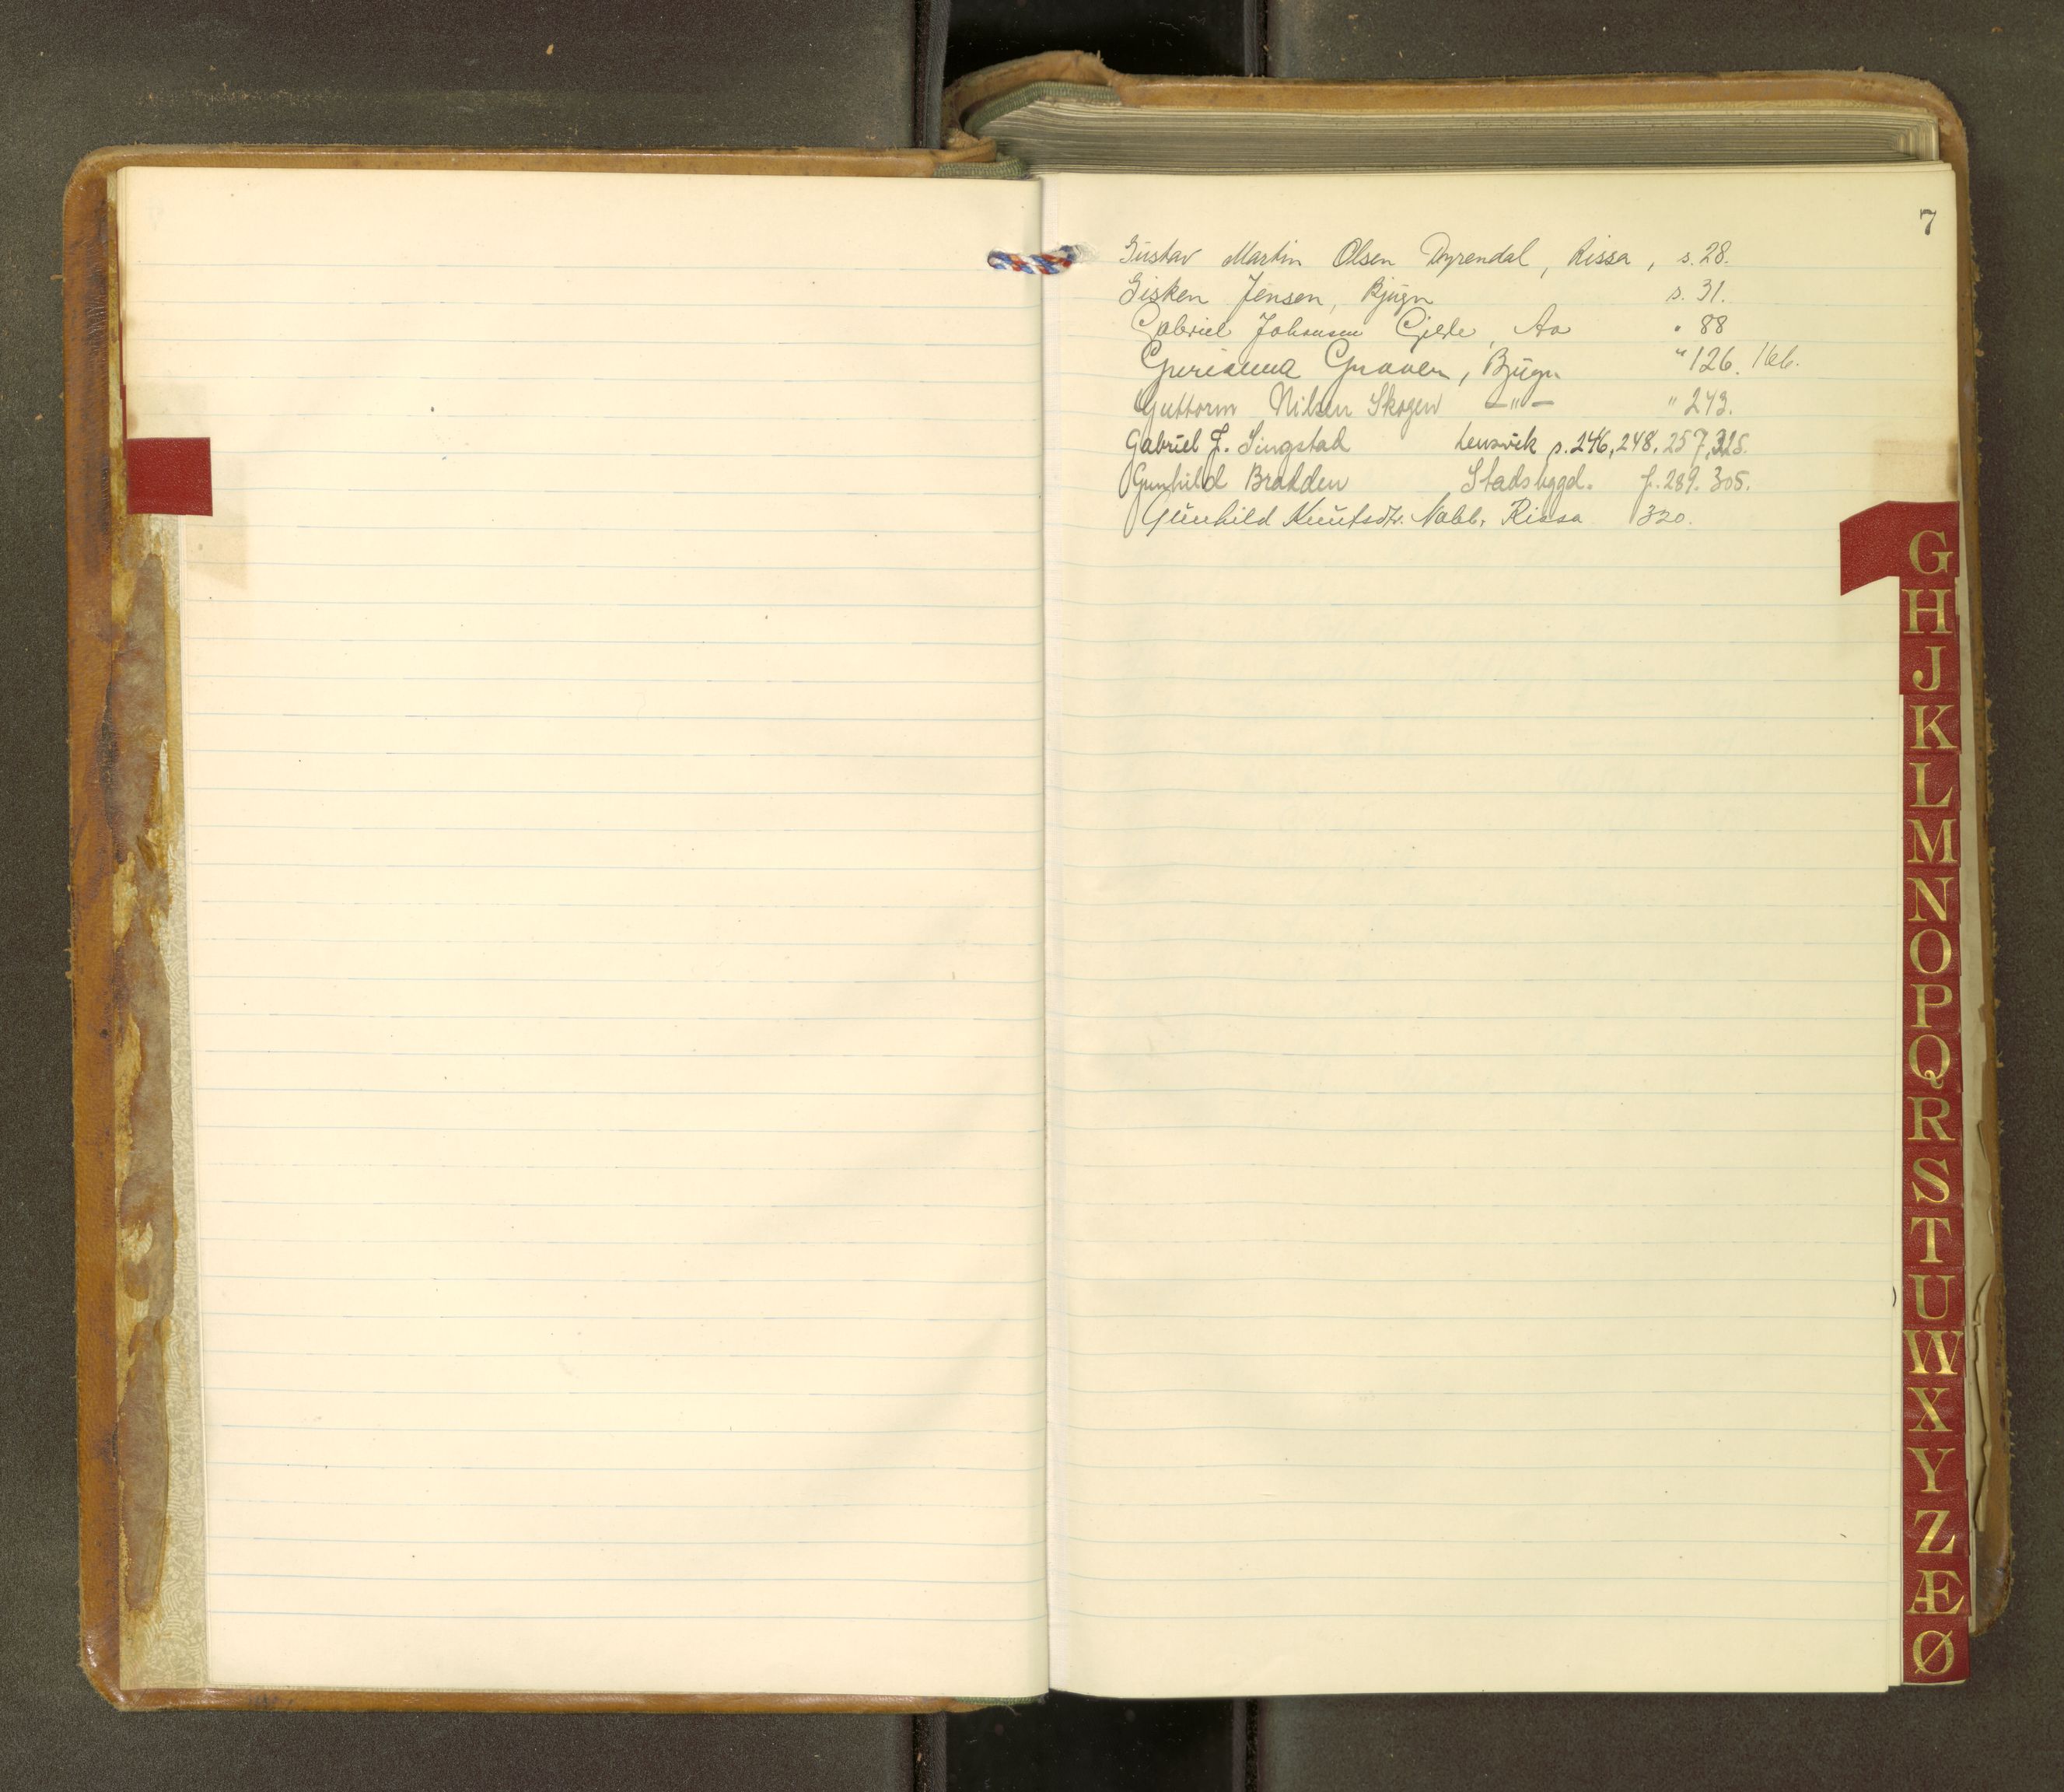 7
Gustav Martin Olsen Dyrendal, Rissa, s. 28.
Gisken Jensen, Bjugn s. 31.
Gabriel Johansen Gjelde, Aa " 88
Gurianna Graven, Bjugn " 126. 166.
Guttorm Nilsen Skogen — " — " 243.
Gabriel J. Singstad Lensvik s. 246, 248, 257, 325.
Gunhild Brødden Stadsbygd. s. 289. 305.
Gunhild Knutsdtr. Nabb, Rissa 320.
G
H
J
K
L
M
N
O
P
Q
R
S
T
U
W
X
Y
Z
Æ
Ø